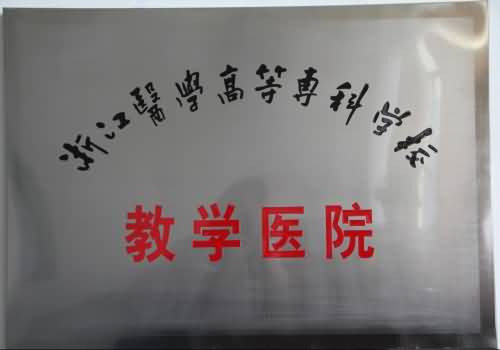 浙江醫學高等專科学校
教学医院